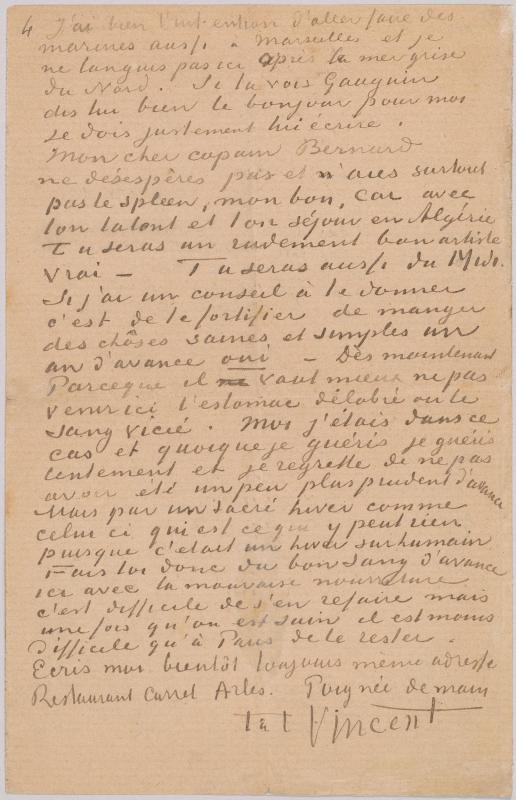 4 J'ai bien l'intention d'aller faire des
marines aussi à Marseilles et je
ne languis pas ici après la mer grise
du Nord. Si tu vois Gauguin
dis lui bien le bonjour pour moi
je dois justement lui écrire.
Mon cher copain Bernard
ne désespères pas et n'aies surtout
pas le spleen, mon bon, car avec
ton talent et ton séjour en Algérie
Tu seras un rudement bon artiste
vrai – Tu seras aussi du Midi.
Si j'ai un conseil à te donner
c'est de te fortifier de manger
des chôses saines et simples un
an d'avance oui – Dès maintenant
Parceque il vaut mieux ne pas
venir ici l'estomac délabré ou le
sang vicié. Moi j'étais dans ce
cas et quoique je guéris je guéris
lentement et je regrette de ne pas
avoir été un peu plus prudent d'avance
Mais par un sacré hiver comme
celui ci qui est ce que y peut rien
puisque c'était un hiver surhumain
Fais toi donc du bon sang d'avance
ici avec la mauvaise nourriture
c'est difficile de s'en refaire mais
une fois qu'on est sain il est moins
Difficile qu'à Paris de le rester.
Ecris moi bientôt toujours même adresse
Restaurant Carrel Arles. Poignée de main
t. à t. Vincent